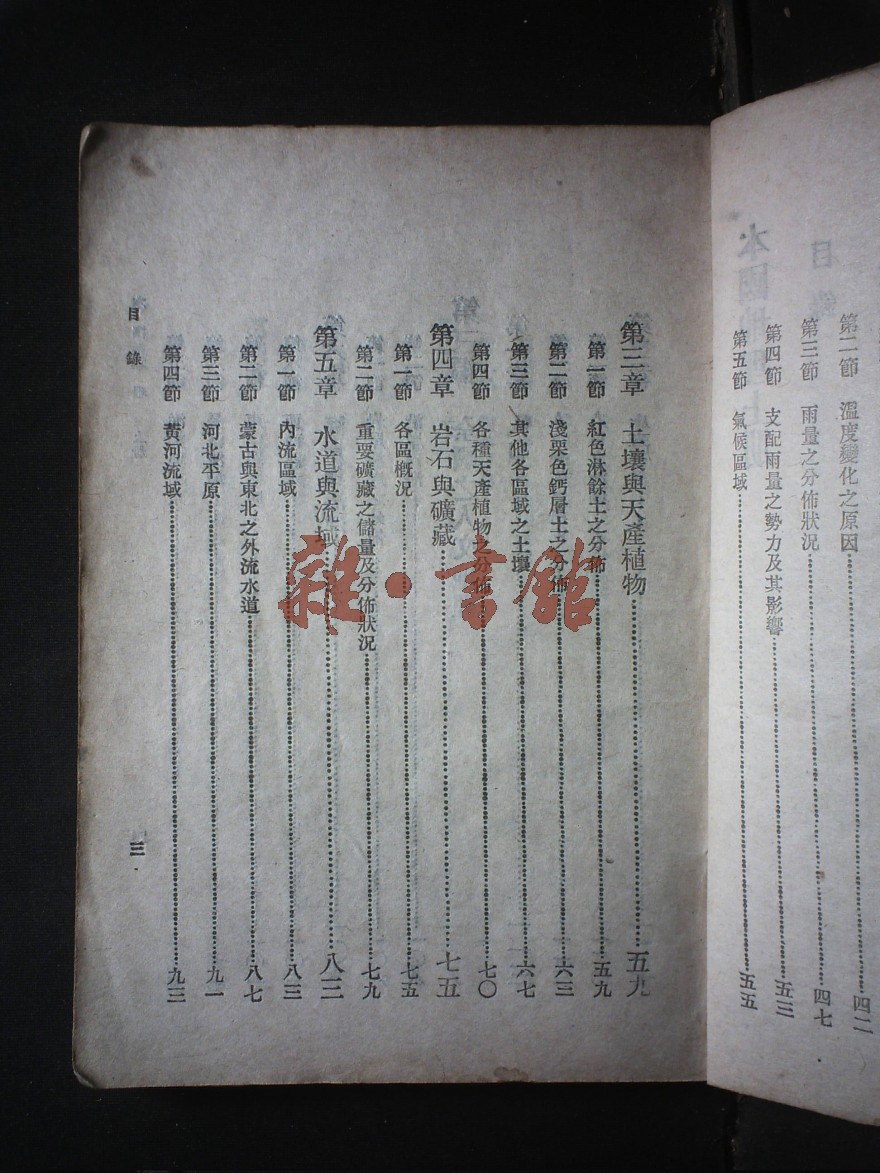 第二節 溫度變化之原因 四二
第三節 雨量之分佈狀況 四七
第四節 支配雨量之勢力及其影響 五三
第五節 氣候區域 五五
第三章 土壤與天產植物 五九
第一節 紅色淋餘土之分佈 五九
第二節 淺栗色鈣層土之分佈 六三
第三節 其他各區域之土壤 六七
第四節 各種天產植物之分佈 七〇
第四章 岩石與礦藏 七五
第一節 各區概況 七五
第二節 重要礦藏之儲量及分佈狀況 七九
第五章 水道與流域 八三
第一節 內流區域 八三
第二節 蒙古與東北之外流水道 八七
第三節 河北平原 九一
第四節 黃河流域 九三
目錄
三
雜·書館